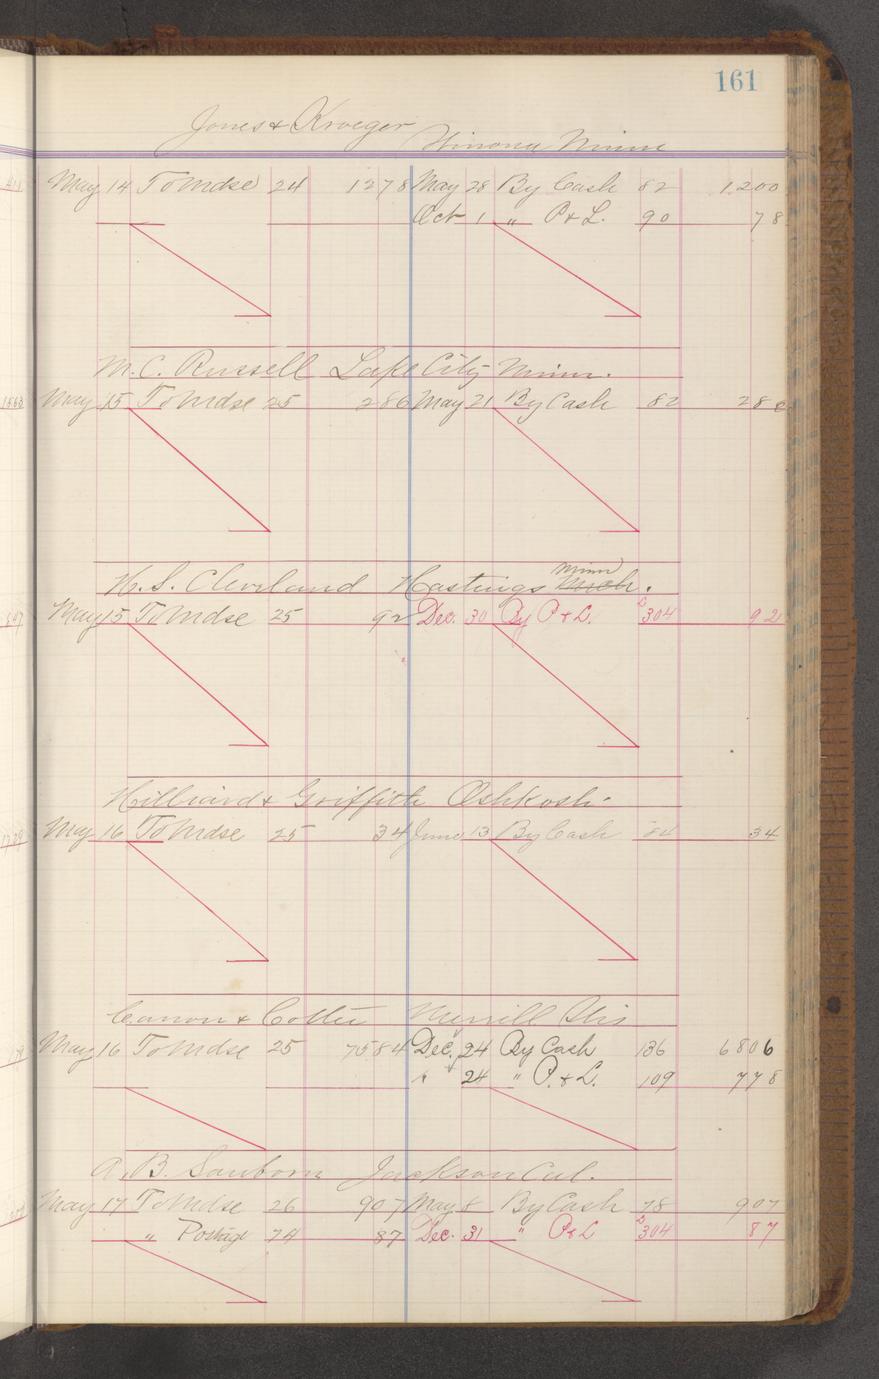 161
Jones & Kroeger Winona Minn
May 14 To Mdse 24 1278 May 28 By Cash 82 1.200
Oct 1 " P & L. 90 78
M. C. Russell Lake City Minn.
May 15 To Mdse 25 286 May 21 By Cash 82 286
H. S. Cleveland Hastings Mich. Minn
May 15 To Mdse 25 92 Dec. 30 By P & L. L304 92
Hilliard & Griffith Oshkosh
May 16 To Mdse 25 34 June 13 By Cash 84 34
Canon & Cotter Merrill Wis
May 16 To Mdse 25 7584 Dec. 24 By Cash 136 6806
" 24 " P. & L. 109 778
A. B. Sanborn Jackson Cal.
May 17 To Mdse 26 907 May 8 By Cash 78 907
" Postage 74 87 Dec. 31 " P & L L304 87